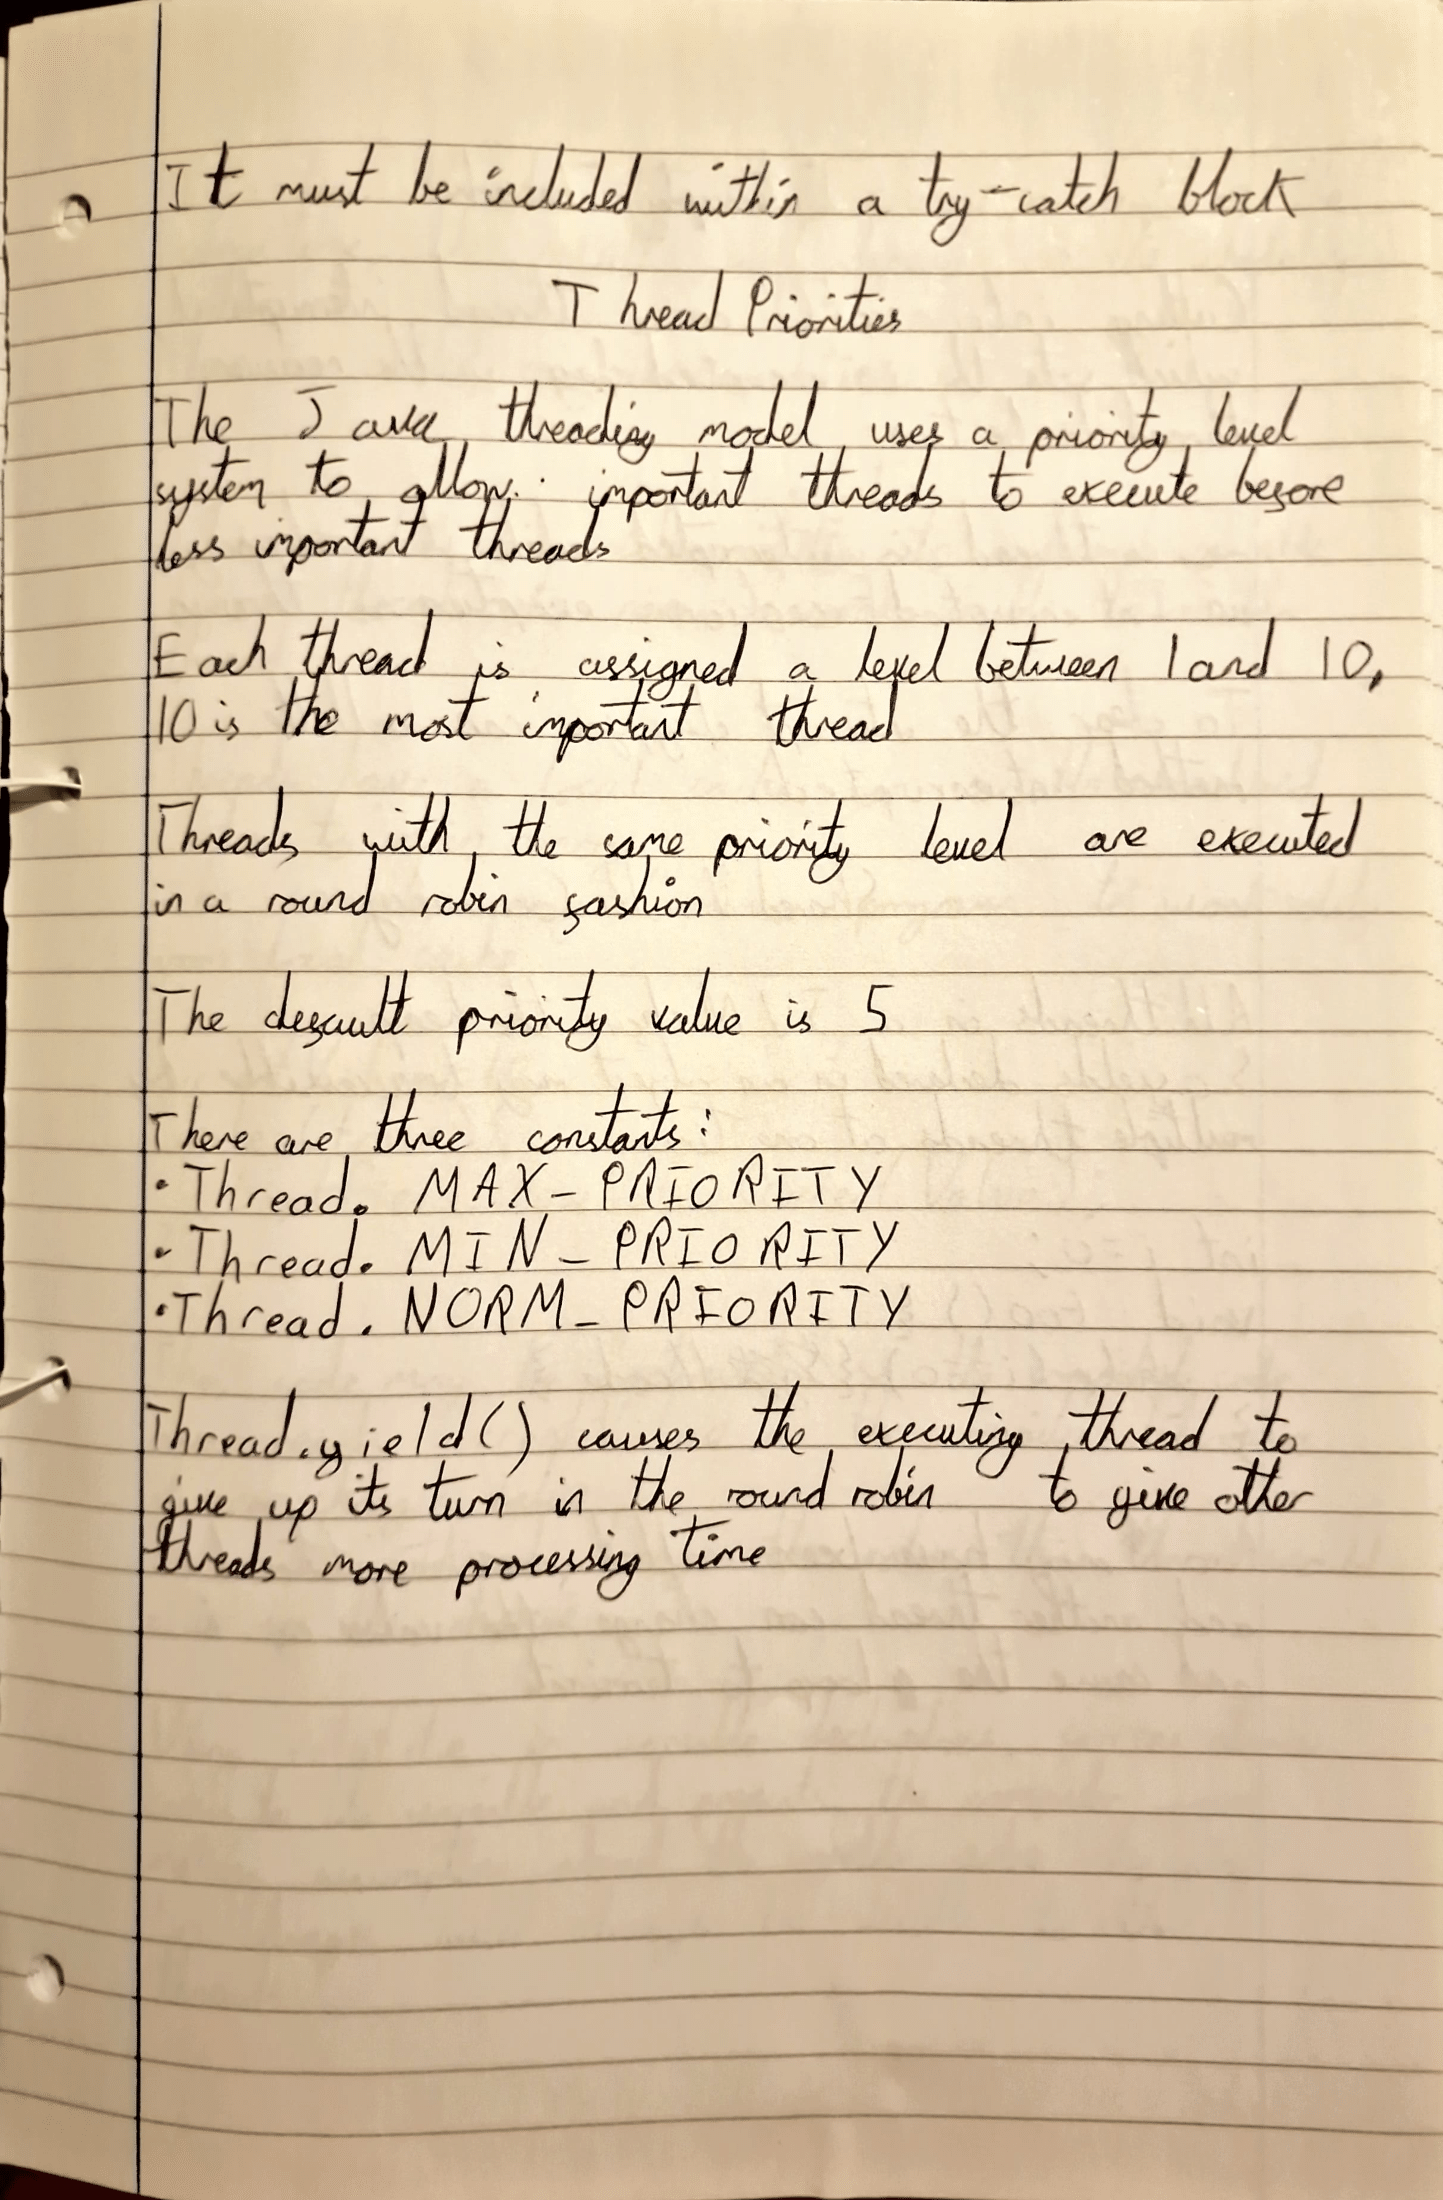 It must be included within a try-catch block
Thread Priorities
The Java threading model uses a priority level
system to allow important threads to execute before
less important threads
Each thread is assigned a level between 1 and 10,
10 is the most important thread
Threads with the same priority level are executed
in a round robin fashion
The default priority value is 5
There are three constants:
• Thread. MAX_PRIORITY
• Thread. MIN_PRIORITY
• Thread. NORM_PRIORITY
Thread.yield() causes the executing thread to
give up its turn in the round robin to give other
threads more processing time